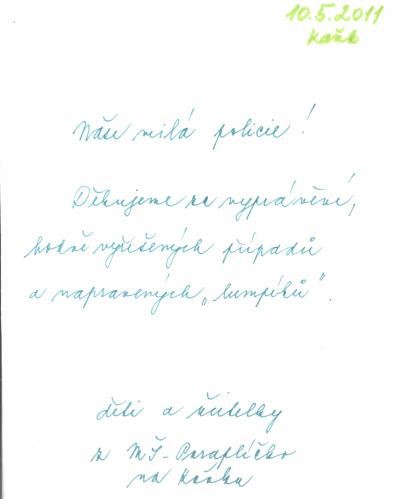 10.5.2011
Kaňk
Naše milá policie!
Děkujeme za vyprávění,
hodně vyřešených případů
a napravených „lumpíků".
děti a učitelky
z MŠ - Paraplíčko
na Kaňku